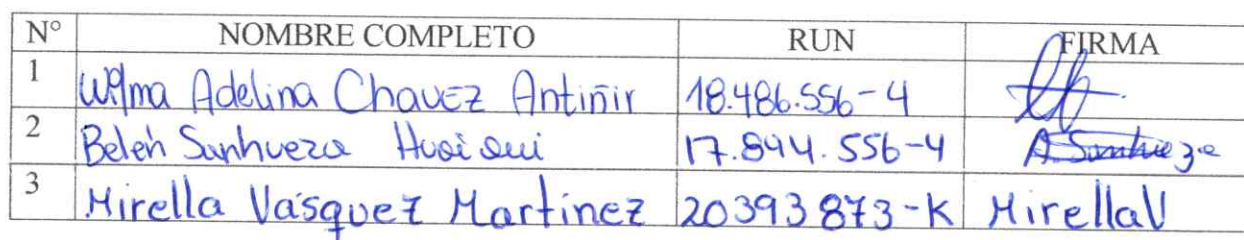 N° NOMBRE COMPLETO RUN FIRMA
1 Wilma Adelina Chavez Antiñir 18.486.556-4
2 Belén Sanhueza Huaiqui 17.894.556-4 A Sanhueza
3 Mirella Vásquez Martínez 20393873-K MirellaV